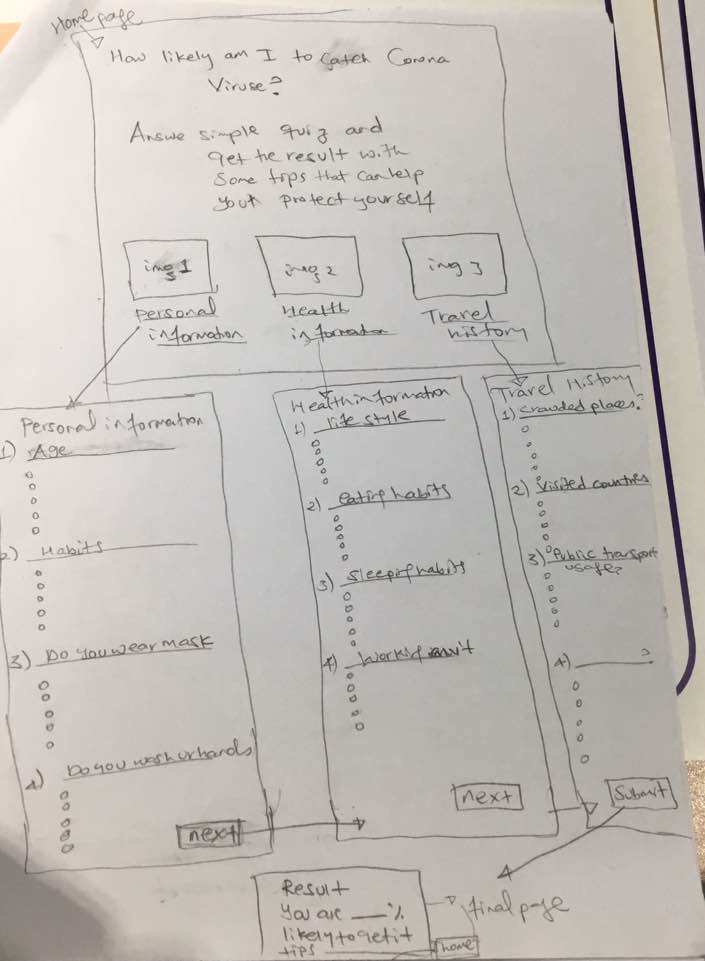 Home page
How likely am I to catch Corona
Viruse?
Answe simple quiz and
get he result with
some tips that can help
you protect yourself
img 1
img 2
img 3
Personal
information
Health
information
Travel
history
Personal information
1) Age
2) Habits
3) Do you wear mask
4) Do you wash ur hands
next
Health information
1) life style
2) eating habits
3) Sleeping habits
4) Working
next
Travel History
1) Crowded places?
2) Visited countries
3) Public transport
usage?
4) ?
Submit
Result
You are __%
likely to get it
tips
home
final page